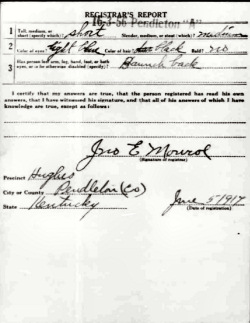 REGISTRAR'S REPORT
16-3-36 Pendleton "A"
1 Tall, medium, or short (specify which)? short Slender, medium, or stout (which)? medium
2 Color of eyes? Light Blue Color of hair? Black Bald? No
3 Has person lost arm, leg, hand, foot, or both eyes, or is he otherwise disabled (specify)? Hunch back
I certify that my answers are true, that the person registered has read his own answers, that I have witnessed his signature, and that all of his answers of which I have knowledge are true, except as follows:
Jno E Monroe
(Signature of registrar)
Precinct Hughes
City or County Pendleton (Co)
State Kentucky
June 5 1917
(Date of registration)